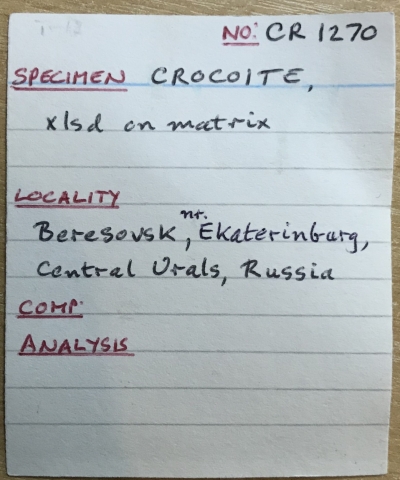 NO: CR 1270
SPECIMEN CROCOITE,
xlsd on matrix
LOCALITY
Beresovsk, nr. Ekaterinburg,
Central Urals, Russia
COMP.
ANALYSIS